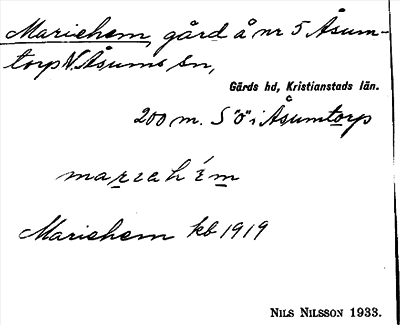 Mariehem, gård å nr 5 Åsum-
torp V. Åsums sn,
Gärds hd, Kristianstads län.
200 m. S "ö" i Åsumtorp
mariahém
Mariehem kb 1919
NILS NILSSON 1933.